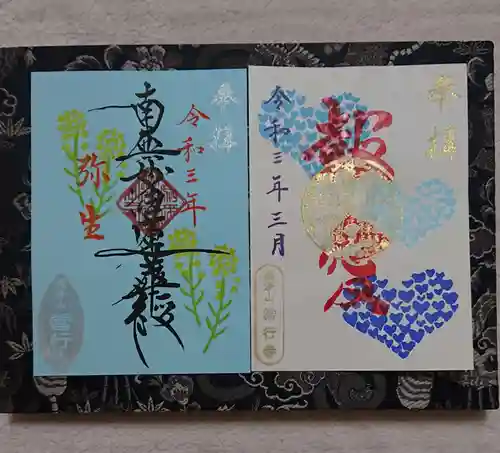 奉拝
令和三年三月
報恩
奉拝
令和三年
南無妙法蓮華経
弥生